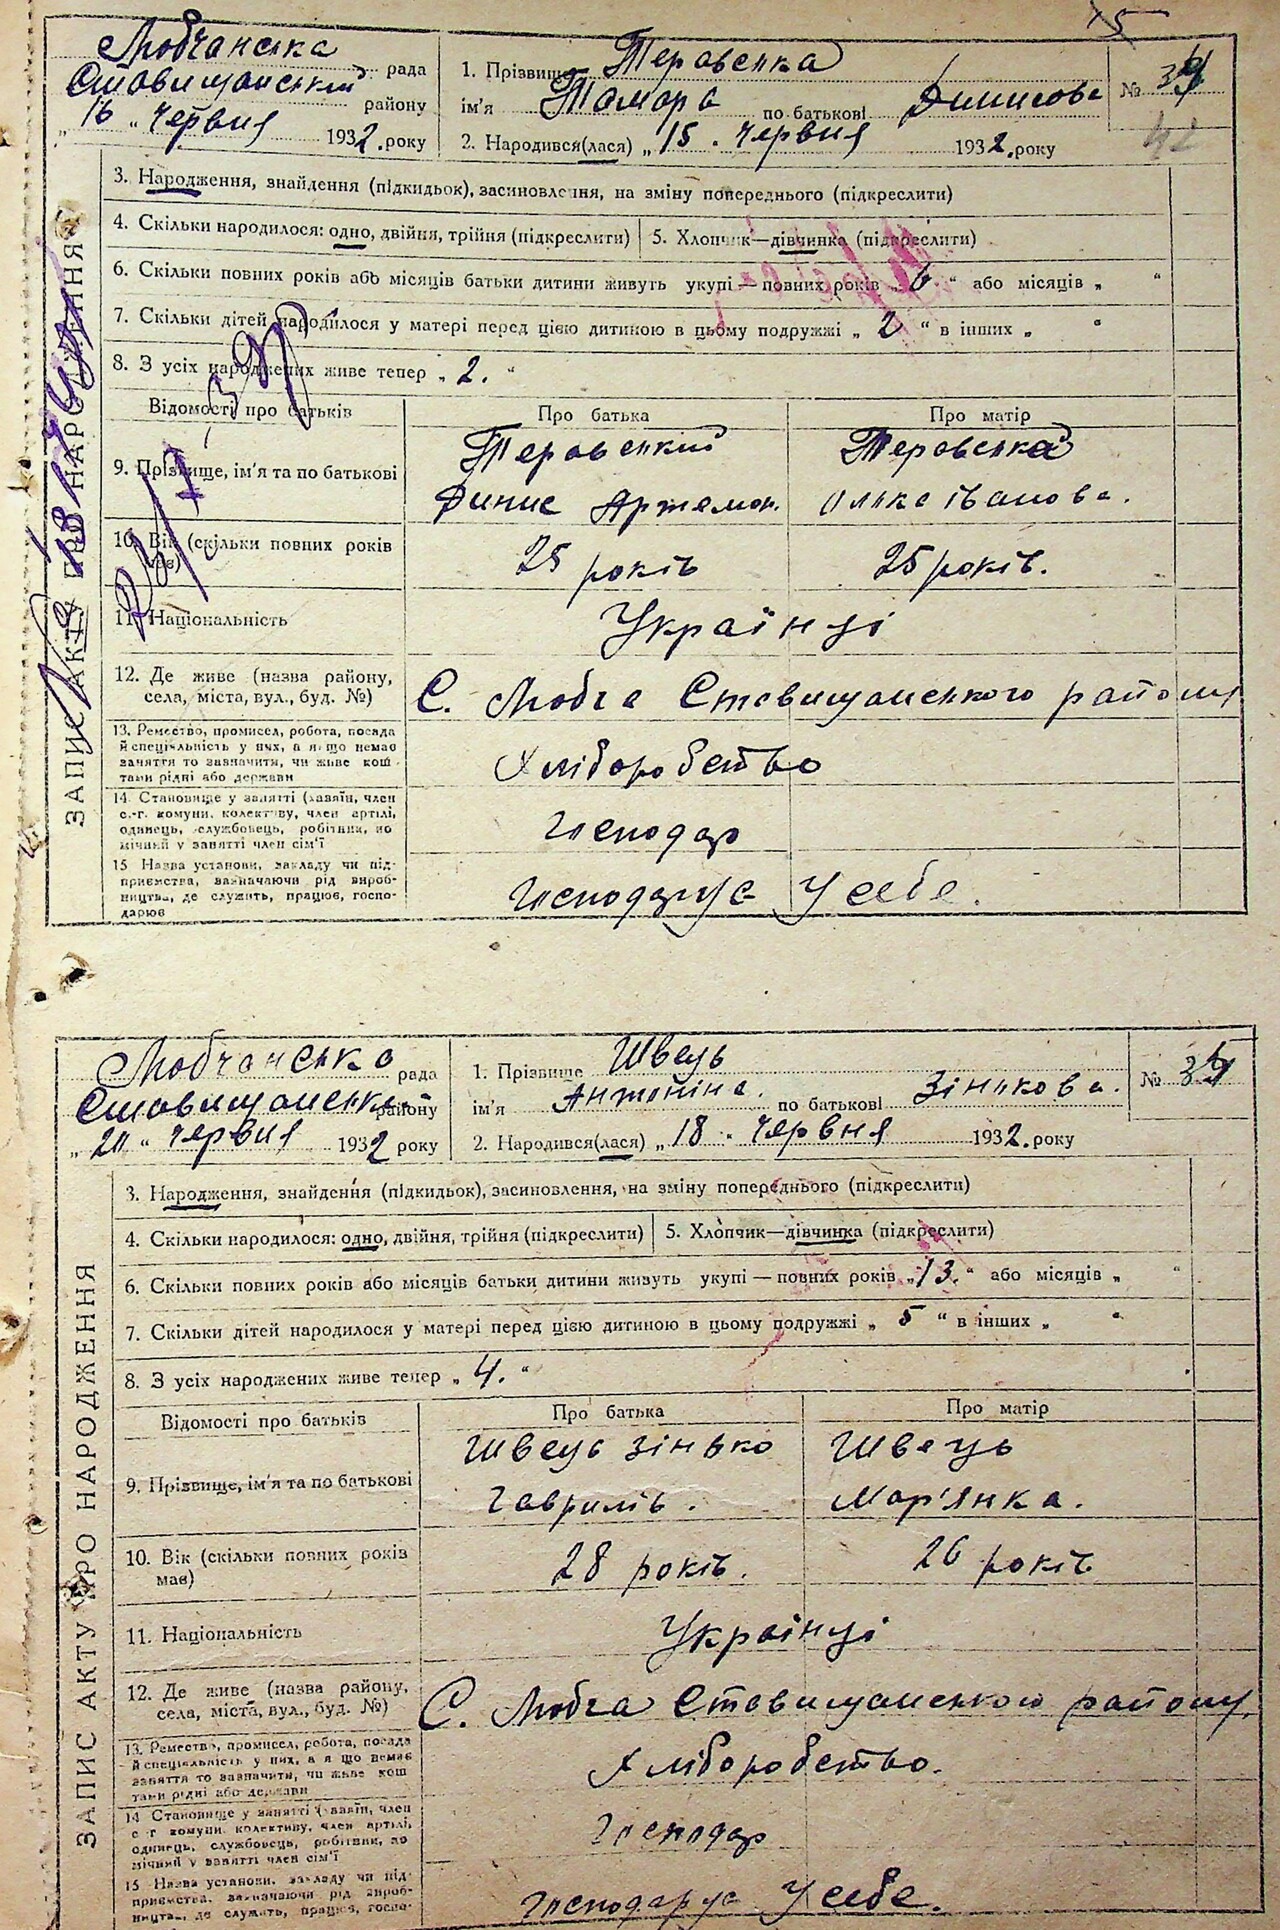 Любчанська рада
Ставищанський району
„ 16 “ червня 1932. року
1. Прізвище Теравська
ім'я Тамара по батькові Динисова
2. Народився(лася) „ 15 . червня 1932. року
№
3. Народження, знайдення (підкидьок), засиновлення, на зміну попереднього (підкреслити)
4. Скільки народилося: одно, двійня, трійня (підкреслити)
5. Хлопчик—дівчинка (підкреслити)
6. Скільки повних років або місяців батьки дитини живуть укупі — повних років „ 6 “ або місяців „ “
7. Скільки дітей народилося у матері перед цією дитиною в цьому подружжі „ 2 “ в інших „ “
8. З усіх народжених живе тепер „ 2. “
Відомості про батьків Про батька Про матір
9. Прізвище, ім'я та по батькові
Теравський Теравська
Динис Артемон. Іванова.
10. Вік (скільки повних років має) 25 років 25 років.
11. Національність Українці
12. Де живе (назва району,
села, міста, вул., буд. №) С. Любча Ставищанського району
13. Ремество, промисел, робота, посада
й спеціяльність у них, а якщо немає
заняття то зазначити, чи живе кош-
тами рідні або держави
Хліборобство
14. Становище у занятті (хазяїн, член
с.-г. комуни, колективу, член артілі,
одинець, службовець, робітник, по
мічний у занятті член сім'ї
Господар
15 Назва установи, закладу чи під-
приємства, вазначаючи рід вироб-
ництва, де служить, працює, госпо-
дарює
Господарує У себе.
ЗАПИС АКТУ ПРО НАРОДЖЕННЯ
Любчанська рада
Ставищанськ. району
„ 20 “ червня 1932 року
1. Прізвище Швець
ім'я Антоніна. по батькові Зінькова.
2. Народився(лася) „ 18 . червня 1932. року
№
3. Народження, знайдення (підкидьок), засиновлення, на зміну попереднього (підкреслити)
4. Скільки народилося: одно, двійня, трійня (підкреслити)
5. Хлопчик—дівчинка (підкреслити)
6. Скільки повних років або місяців батьки дитини живуть укупі — повних років „ 13. “ або місяців „ “
7. Скільки дітей народилося у матері перед цією дитиною в цьому подружжі „ 5 “ в інших „ “
8. З усіх народжених живе тепер „ 4. “
Відомості про батьків Про батька Про матір
9. Прізвище, ім'я та по батькові
Швець Зінько Швець
Гаврилів. Мар'янка.
10. Вік (скільки повних років
має) 28 років. 26 років
11. Національність Українці
12. Де живе (назва району,
села, міста, вул., буд. №) С. Любча Ставищанського району.
13. Ремество, промисел, робота, посада
й спеціяльність у них, а якщо немає
заняття то зазначити, чи живе кош
тами рідні або держави
Хліборобство.
14 Становище у занятті (хазяїн, член
с г комуни колективу, член артілі,
одинець, службовець, робітник, по
мічний у занятті член сім'ї
Господар
15 Назва установи, закладу чи під-
приємства, вазначаючи рід вироб-
ництва, де служить, працює, госпо-
Господарує У себе.
ЗАПИС АКТУ ПРО НАРОДЖЕННЯ